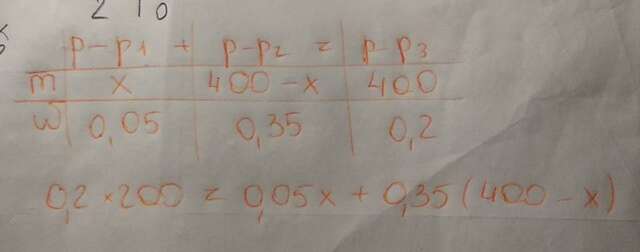 2 10
p-p1 + p-p2 = p-p3
m x 400-x 400
w 0,05 0,35 0,2
0,2×200 = 0,05x + 0,35(400-x)